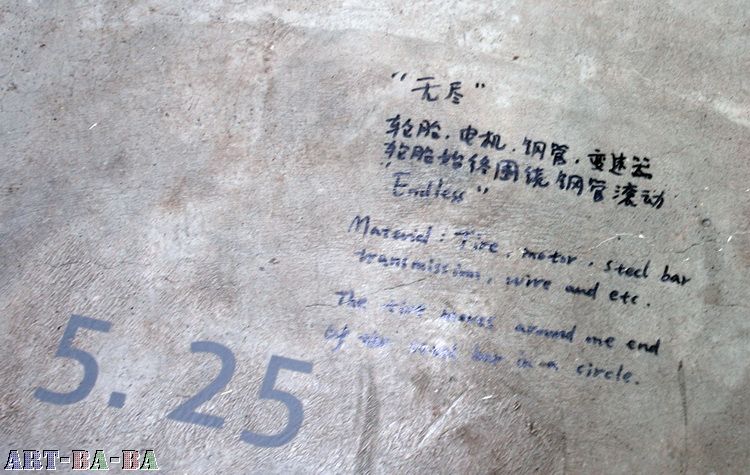 “无尽”
轮胎，电机，钢管，变速器
轮胎始终围绕钢管滚动
“Endless”
Material: Tire, motor, steel bar
transmission, wire and etc.
The tire moves around one end
of the steel bar in a circle.
5.25
ART-BA-BA